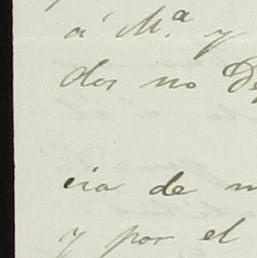 á M.ª y
dos no De
cia de m
y por el